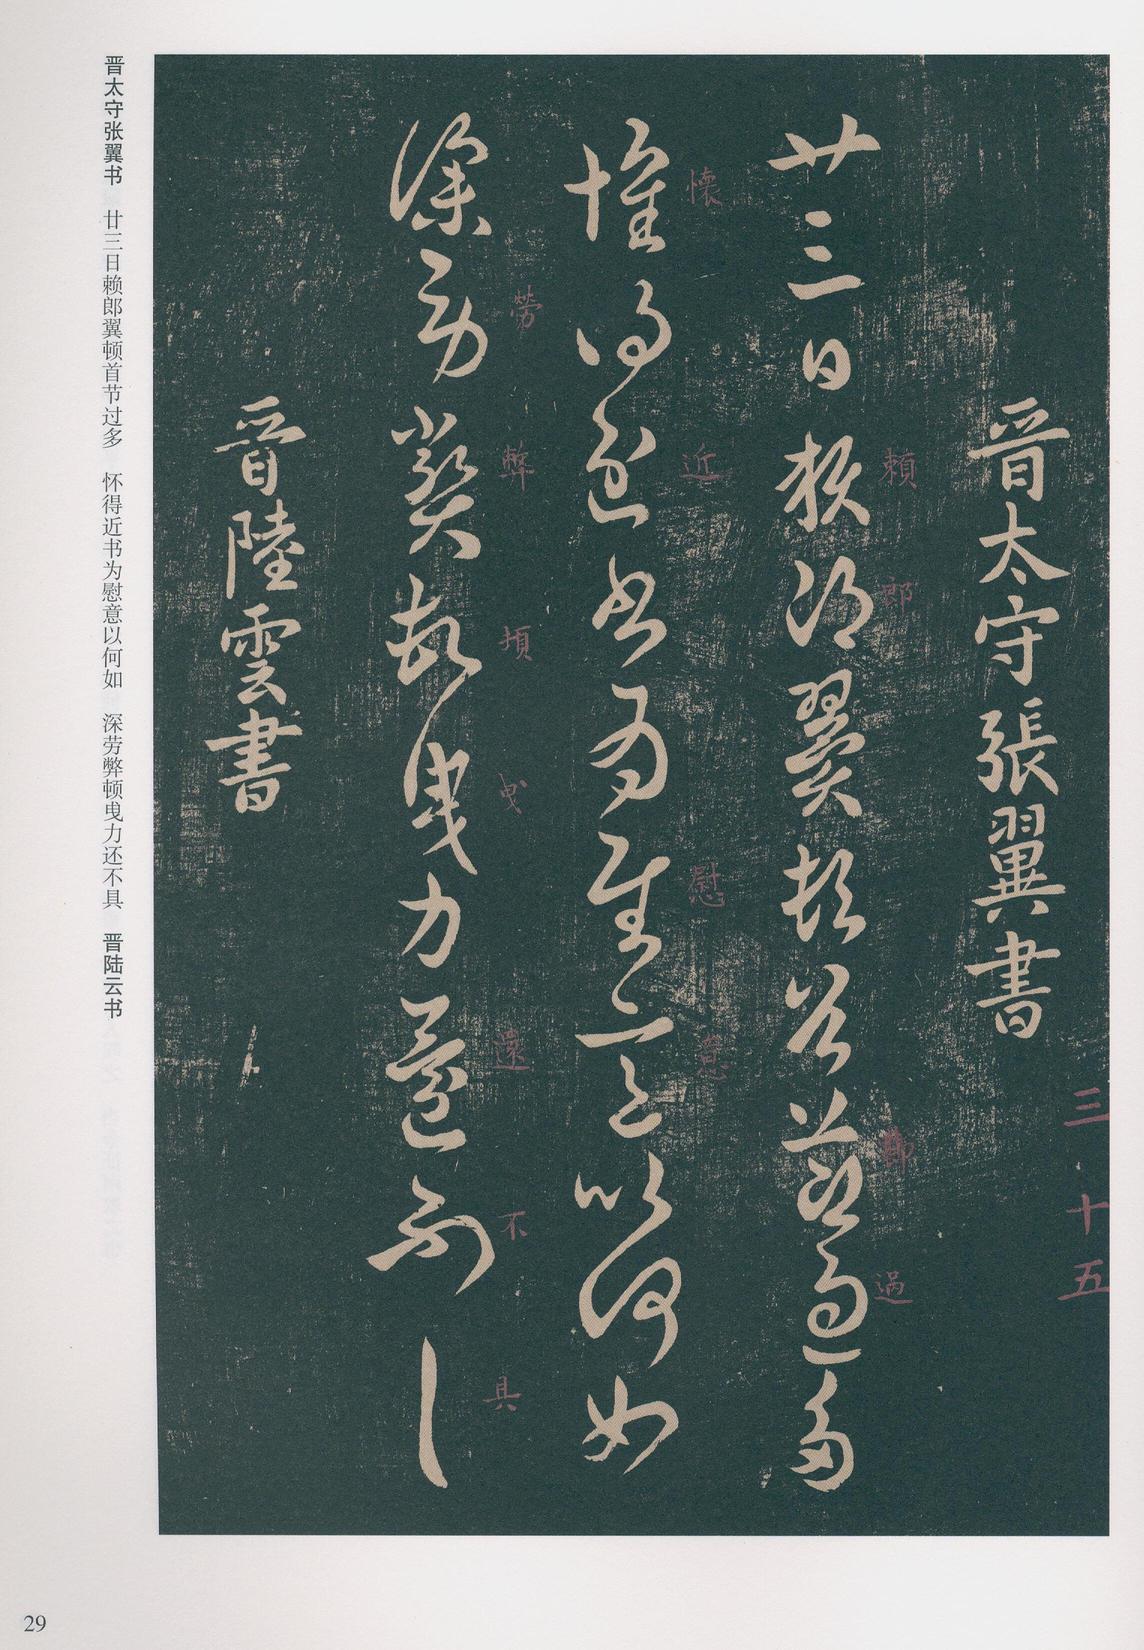 三十五
晉太守張翼書
廿三日賴郎翼頓首節過多
賴郎節過
懷得近書為慰意以何如
懷近慰意
深勞弊頓曳力還不具
勞弊頓曳還不具
晉陸雲書
晋太守张翼书 廿三日赖郎翼顿首节过多 怀得近书为慰意以何如 深劳弊顿曳力还不具 晋陆云书
29